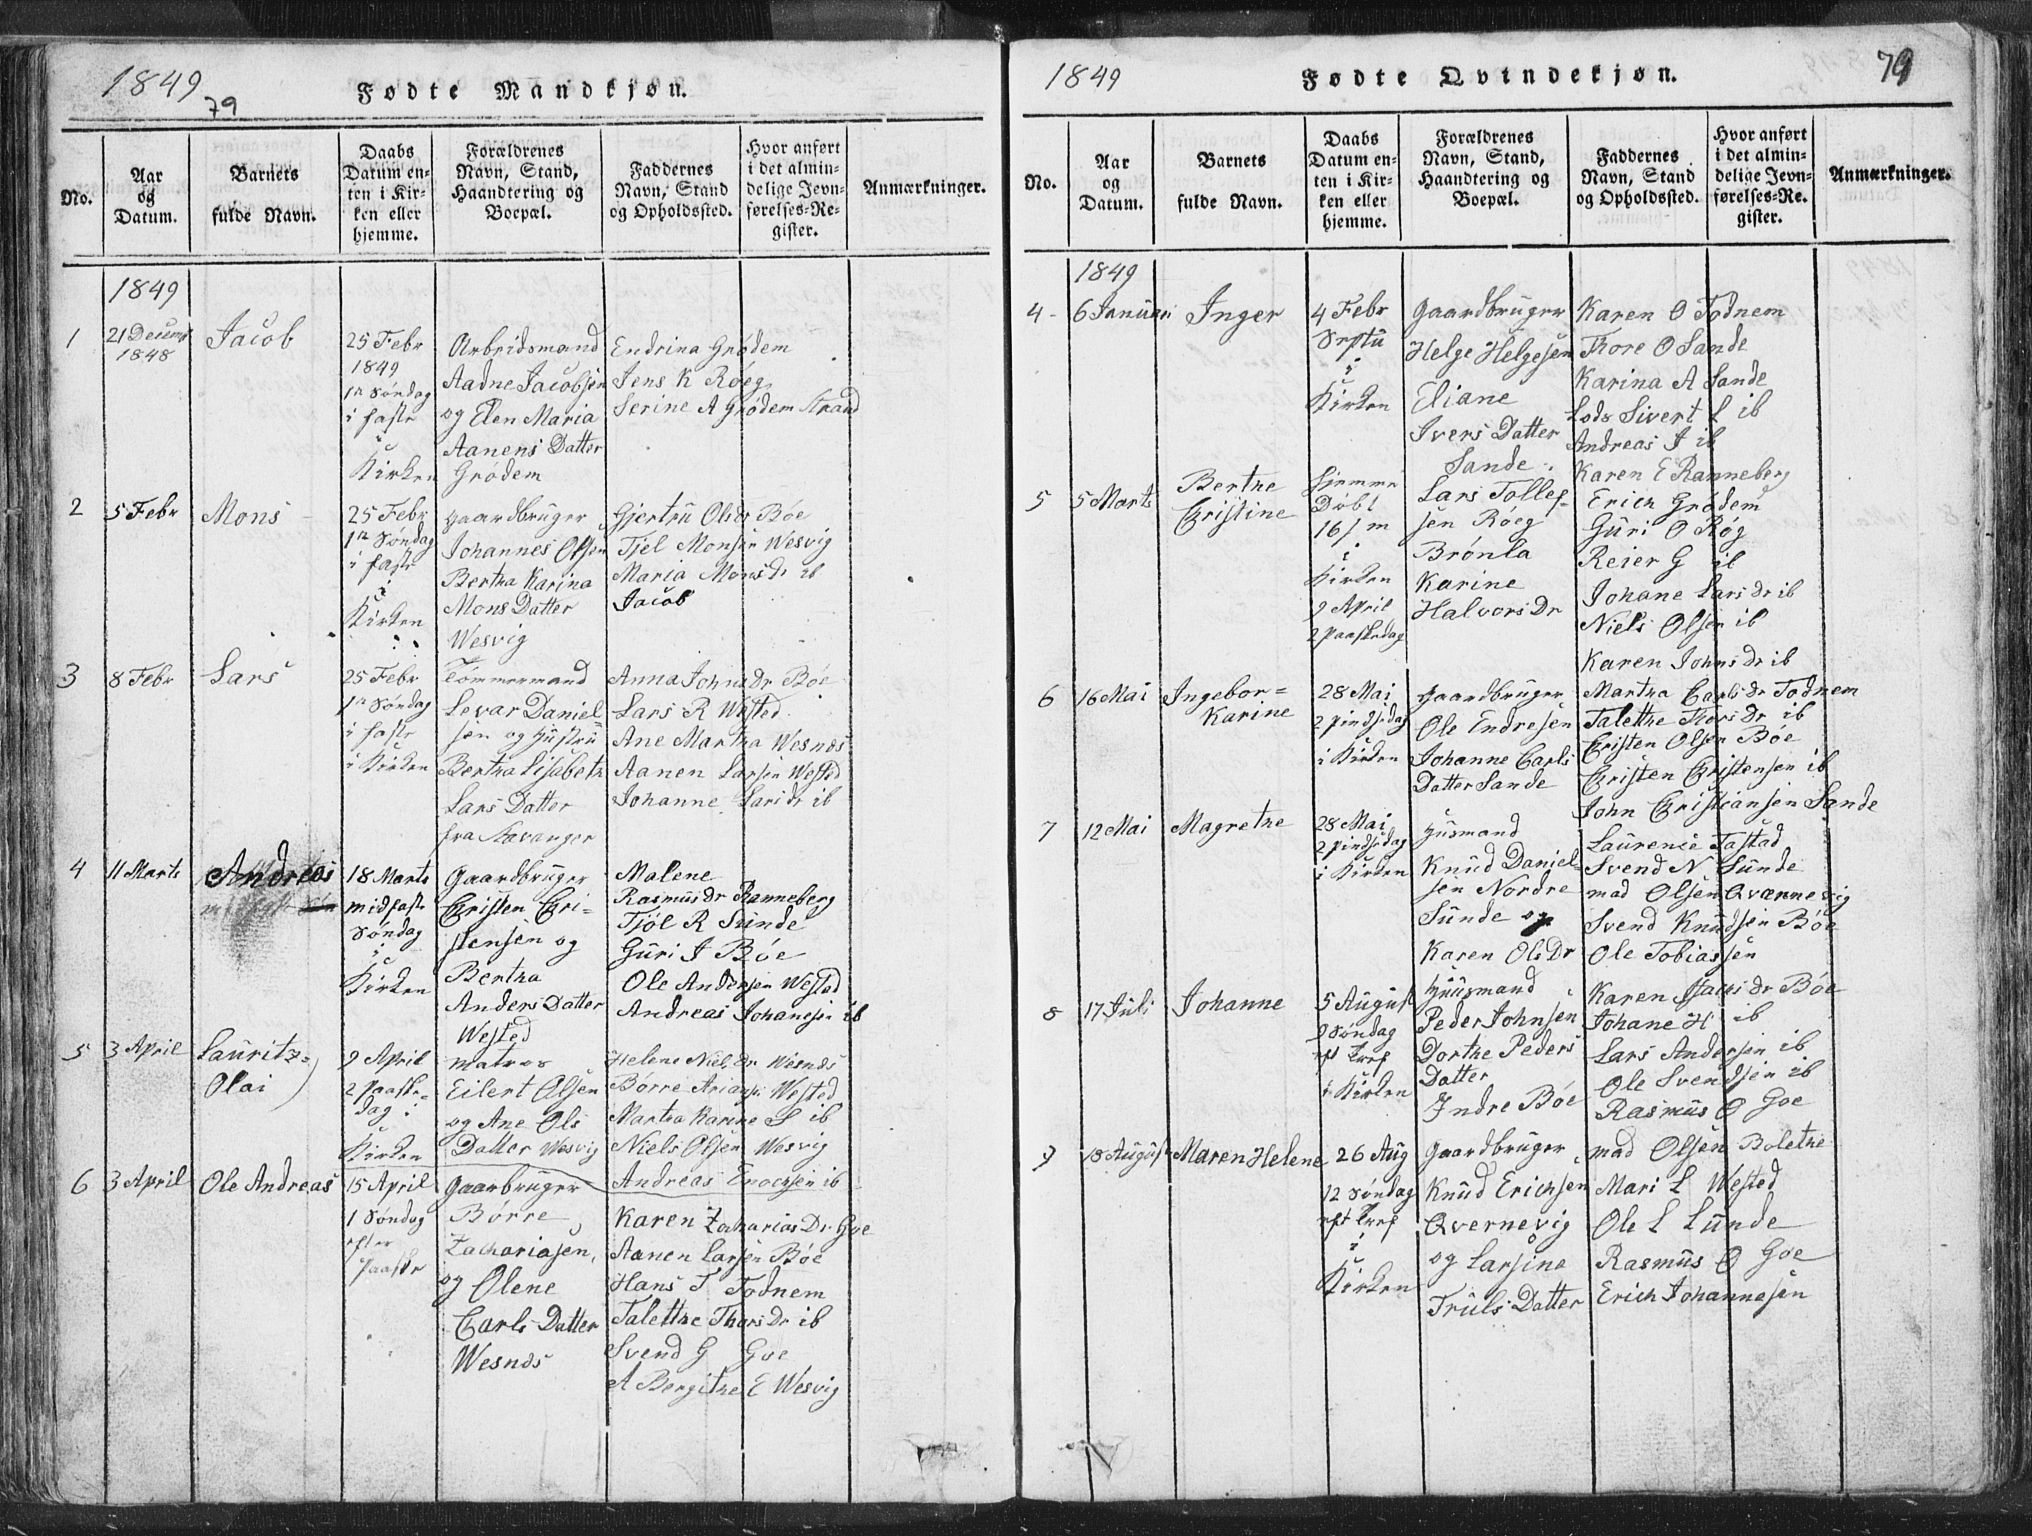 1849
79
Fødte Mandkjøn.
No.
Aar
og
Datum.
Barnets
fulde Navn.
Daabs
Datum en-
ten i Kir-
ken eller
hjemme.
Forældrenes
Navn, Stand,
Haandtering og
Boepæl.
Faddernes
Navn, Stand
og Opholdssted.
Hvor anført
i det almin-
delige Jevn-
førelses-Re-
gister.
Anmærkninger.
1849
1
21 Decemb
1848
Jacob
25 Febr
1849
1n Søndag
i faste
i
Kirken
Arbeidsmand
Aadne Jacobsen
og Elen Maria
Aanens Datter
Grødem
Endrina Grødem
Jens K Røeg
Serine A Grødem Strand
2
5 Febr
Mons
25 Febr
1n Søndag
i faste
i
Kirken
gaardbruger
Johannes Olsen
Bertha Karina
Mons Datter
Wesvig
Gjertru Olsdr Bøe
Tjel Monsen Wesvig
Maria Monsdr ib
Jacob
3
8 Febr
Lars
25 Febr
1n Søndag
i faste
i Kirken
Tømmermand
Levar Daniel
sen og Hustru
Bertha Lisabeth
Lars Datter
fra Stavanger
Anna Johnsdr Bøe
Lars R Wested
Ane Martha Wesnæs
Aanen Larsen Wested
Johanne Larsdr ib
4
11 Marts
Andreas
18 Marts
midfaste
Søndag
i
Kirken
Gaardbruger
Cristen Cri-
stensen og
Bertha
Anders Datter
Wested
Malene
Rasmusdr Ranneberg
Tjøl R Sunde
Guri J Bøe
Ole Andersen Wested
Andreas Johanesen ib
5
3 April
Lauritz=
Olai
9 April
2 Paaske-
dag i
Kirken
matros
Eilert Olsen
og Ane Ols
Datter Wesvig
Helene Niels Dr Wesnæs
Børre Ariansen Wested
Martha Karine S ib
Niels Olsen Wesvig
Andreas Enochsen ib
6
3 April
Ole Andreas
15 April
1 Søndag
efter
Paaske
Gaarbruger
Børre
Zachariasen,
og Olene
Carls Datter
Wesnæs
Karen Zacharias Dr Goe
Aanen Larsen Bøe
Hans T Todnem
Talethe Thors Dr ib
Svend G Goe
A Bergithe E Wesvig
1849
Fødte Qvindekjøn.
79
No.
Aar
og
Datum.
Barnets
fulde Navn.
Daabs
Datum en-
ten i Kir-
ken eller
hjemme.
Forældrenes
Navn, Stand,
Haandtering og
Boepæl.
Faddernes
Navn, Stand
og Opholdssted.
Hvor anført
i det almin-
delige Jevn-
førelses-Re-
gister.
Anmærkninger.
1849
4
6 Januari
Inger
4 Febr
Septu
i
Kirken
Gaardbruger
Helge Helgesen
Eliane
Ivers Datter
Sande
Karen O Todnem
Thore O Sande
Karina A Sande
Lods Sivert L ib
Andreas J ib
5
5 Marts
Berthe
Cristine
Hjemme
Døbt
16/ m
i
Kirken
9 April
2 Paaskedag
Lars Tollef-
sen Røeg
Brønla
Karine
Halvors Dr
Karen E Ranneberg
Erich Grødem
Guri O Røg
Reier G ib
Johane Lars dr ib
Niels Olsen ib
Karen Johns dr ib
6
16 Mai
Ingebor=
Karine
28 Mai
2 pindsedag
i Kirken
Gaardbruger
Ole Endresen
Johanne Carls
Datter Sande
Martha Carls dr Todnem
Talethe Thors dr ib
Cristen Olsen Bøe
Cristen Cristensen ib
John Cristiansen Sande
7
12 Mai
Magrethe
28 Mai
2 pindsdag
i Kirken
Husmand
Knud Daniel-
sen Nordre
Sunde og
Karen Ols Dr
Laurense Tastad
Svend N Sunde
mad Olsen Qvænnevig
Svend Knudsen Bøe
Ole Tobiassen
8
17 Juli
Johanne
5 August
9 Søndag
eft Tref
i Kirken
Huusmand
Peder Johnsen
Dorthe Peders
Datter
Indre Bøe
Karen Isachs dr Bøe
Johane H ib
Lars Andersen ib
Ole Svendsen ib
Rasmus O Goe
9
18 August
Maren Helene
26 Aug
12 Søndag
eft Tref
i
Kirken
Gaardbruger
Knud Erichsen
Qvernevig
og Larsine
Truls Datter
mad Olsen Bolethe
Mari L Wested
Ole L Lunde
Rasmus O Goe
Erich Johannesen